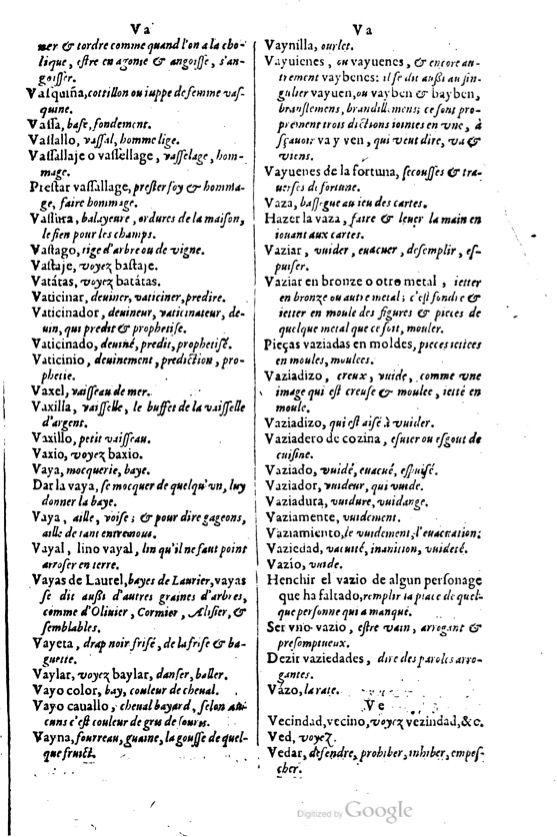 Va
ner & tordre comme quand l'on a la cho-
lique, estre en agonie & angoisse, s'an-
goisser.
Vasquiña, cottillon ou iuppe de femme vas-
quine.
Vassa, base, fondement.
Vassallo, vassal, homme lige.
Vassallaje o vassellage, vasselage, hom-
mage.
Prestar vassallage, prester foy & homma-
ge, faire hommage.
Vassura, balayeure, ordures de la maison,
le fien pour les champs.
Vastago, tige d'arbre ou de vigne.
Vastaje, voyez bastaje.
Vatátas, voyez batátas.
Vaticinar, deuiner, vaticiner, predire.
Vaticinador, deuineur, vaticinateur, de-
uin, qui predit & prophetise.
Vaticinado, deuiné, predit, prophetisé.
Vaticinio, deuinement, prediction, pro-
phetie.
Vaxel, vaisseau de mer.
Vaxilla, vaisselle, le buffet de la vaisselle
d'argent.
Vaxillo, petit vaisseau.
Vaxio, voyez baxio.
Vaya, mocquerie, baye.
Dar la vaya, se mocquer de quelqu'vn, luy
donner la baye.
Vaya, aille, voise; & pour dire gageons,
aille de tant entre nous.
Vayal, lino vayal, lin qu'il ne faut point
arroser en terre.
Vayas de Laurel, bayes de Laurier, vayas
se dit aussi d'autres graines d'arbres,
comme d'Oliuier, Cormier, Alisier, &
semblables.
Vayeta, drap noir frisé, de la frise & ba-
guette.
Vaylar, voyez baylar, danser, baller.
Vayo color, bay, couleur de cheual.
Vayo cauallo, cheual bayard, selon au-
cuns c'est couleur de gru de souris.
Vayna, fourreau, guaine, la gousse de quel-
que fruict.
Va
Vaynilla, ourlet.
Vayuienes, ou vayuenes, & encore au-
trement vaybenes: il se dit aussi au sin-
gulier vayuen, ou vayben & bayben,
branslemens, brandillemens; ce sont pro-
prement trois dictions iointes en vne, à
sçauoir va y ven, qui veut dire, va &
viens.
Vayuenes de la fortuna, secousses & tra-
uerses de fortune.
Vaza, bassegue au ieu des cartes.
Hazer la vaza, faire & leuer la main en
iouant aux cartes.
Vaziar, vuider, euacuer, desemplir, es-
puiser.
Vaziar en bronze o otro metal, ietter
en bronze ou autre metal; c'est fondre &
ietter en moule des figures & pieces de
quelque metal que ce soit, mouler.
Pieças vaziadas en moldes, pieces iettees
en moules, moulees.
Vaziadizo, creux, vuide, comme vne
image qui est creuse & moulee, ietté en
moule.
Vaziadizo, qui est aisé à vuider.
Vaziadero de cozina, esuier ou esgout de
cuisine.
Vaziado, vuidé, euacué, espuisé.
Vaziador, vuideur, qui vuide.
Vaziadura, vuidure, vuidange.
Vaziamente, vuidement.
Vaziamiento, le vuidement, l'euacuation;
Vaziedad, vacuité, inanition, vuideté.
Vazío, vuide.
Henchir el vazio de algun personage
que ha faltado, remplir la place de quel-
que personne qui a manqué.
Ser vno vazio, estre vain, arrogant &
presomptueux.
Dezir vaziedades, dire des paroles arro-
gantes.
Vázo, la rate.
Ve
Vecindad, vecino, voyez vezindad, &c.
Ved, voyez.
Vedar, defendre, prohiber, inhiber, empes-
cher.
Digitized by Google